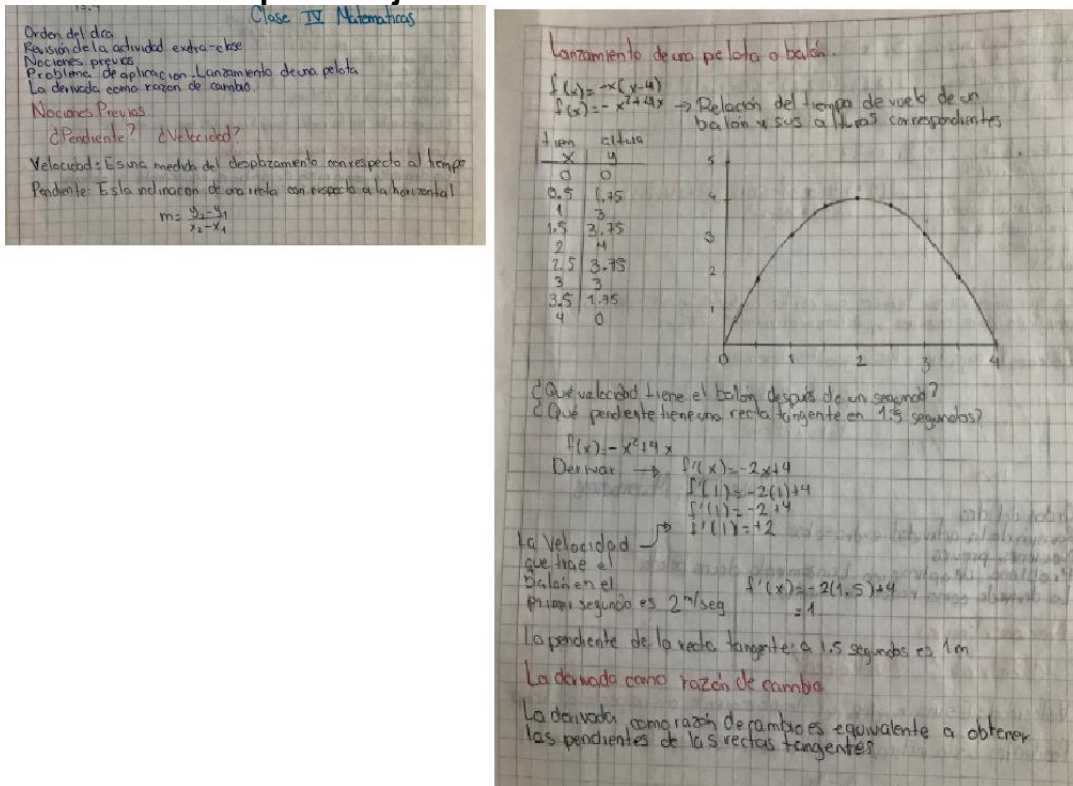 Clase IV Matematicas
Orden del dia
Revisión de la actividad extra-clase
Nociones previas
Problema de aplicacion. Lanzamiento de una pelota
La derivada como razon de cambio.
Nociones Previas
¿Pendiente? ¿Velocidad?
Velocidad: Es una medida del desplazamiento con respecto al tiempo
Pendiente: Es la inclinacion de una recta con respecto a la horizontal
m= y₂-y₁
x₂-x₁
Lanzamiento de una pelota o balón.
f(x)=-x(x-4)
f(x)=-x²+4x → Relación del tiempo de vuelo de un
balón y sus alturas correspondientes
altura
x y
0 0
0.5 1.75
1 3
1.5 3.75
2 4
2.5 3.75
3 3
3.5 1.75
4 0
5
4
3
2
1
0 1 2 3 4
¿Qué velocidad tiene el balón después de un segundo?
¿Qué pendiente tiene una recta tangente en 1.5 segundos?
f(x)=-x²+4x
Derivar → f'(x)=-2x+4
f'(1)=-2(1)+4
f'(1)=-2+4
f'(1)=+2
La velocidad
que trae el
balón en el
primer segundo es 2 m/seg
f'(x)=-2(1.5)+4
=1
La pendiente de la recta tangente a 1.5 segundos es 1m
La derivada como razón de cambio
La derivada como razón de cambio es equivalente a obtener
las pendientes de las rectas tangentes